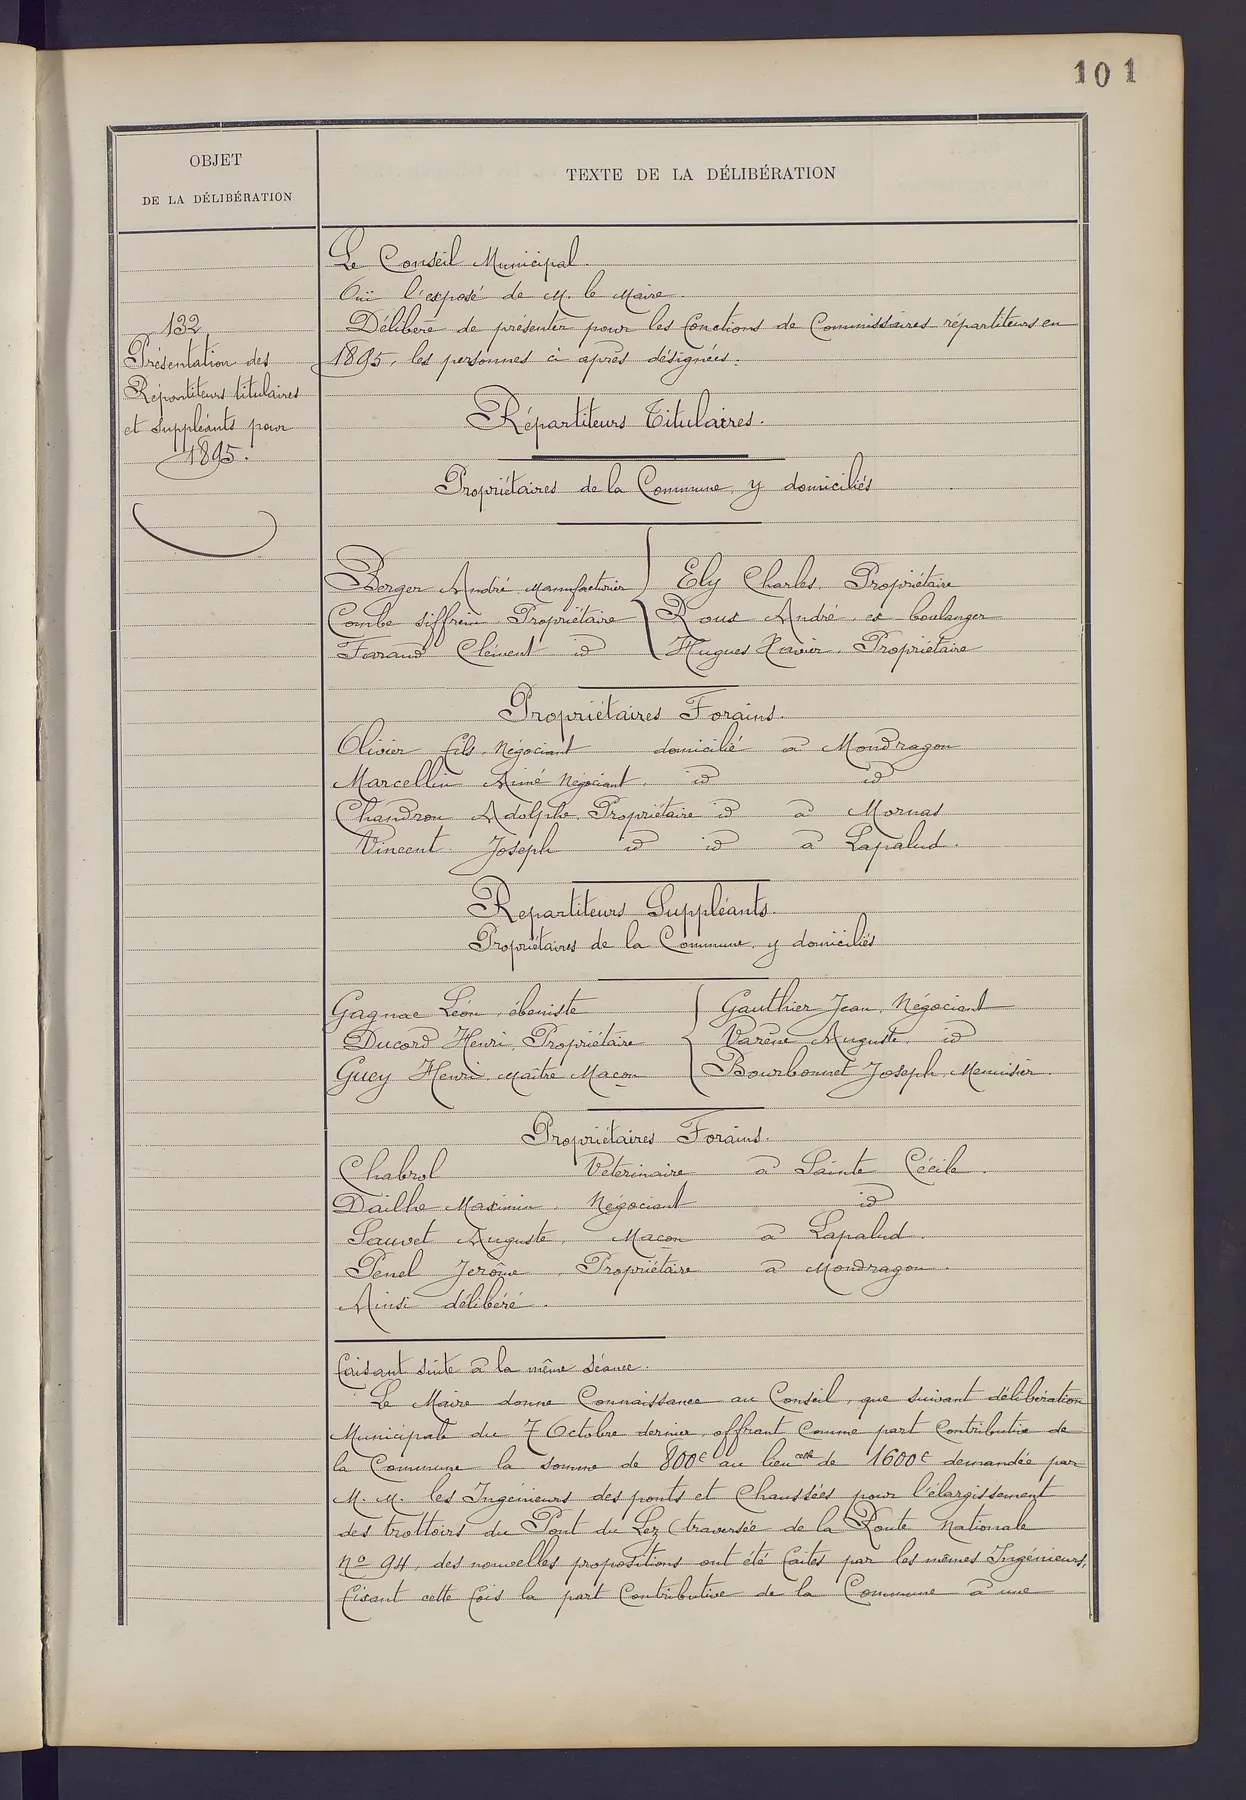 101
OBJET
DE LA DÉLIBÉRATION
TEXTE DE LA DÉLIBÉRATION
132
Présentation des
Répartiteurs titulaires
et Suppléants pour
1895.
Le Conseil Municipal.
Ouï l'exposé de M. le Maire.
Délibère de présenter pour les fonctions de Commissaires répartiteurs en
1895, les personnes ci après désignées:
Répartiteurs Titulaires.
Propriétaires de la Commune, y domiciliés
Berger André, Manufacturier
Combe Siffrein, Propriétaire
Faraud Clément id
Ely Charles, Propriétaire
Roux André, ex boulanger
Hugues Xavier, Propriétaire
Propriétaires Forains.
Olivier fils, Négociant domicilié à Mondragon
Marcellin Aimé Négociant, id id
Chaudron Adolphe, Propriétaire id à Mornas
Vincent Joseph id id à Lapalud.
Repartiteurs Suppléants.
Propriétaires de la Commune, y domiciliés
Gagnac Léon, ébéniste
Ducord Henri, Propriétaire
Guey Henri, Maître Maçon
Gauthier Jean, Négociant
Varène Auguste, id
Bourbonnet Joseph, Menuisier.
Propriétaires Forains.
Chabrol Vétérinaire à Sainte Cécile.
Dailhe Maximin, Négociant id
Sauvet Auguste, Maçon à Lapalud.
Penel Jerôme, Propriétaire à Mondragon.
Ainsi délibéré.
Faisant suite à la même séance.
Le Maire donne Connaissance au Conseil, que suivant délibération
Municipale du 7 Octobre dernier, offrant comme part Contributive de
la Commune la somme de 800f au lieu de celle de 1600f demandée par
M. M. les Ingénieurs des ponts et Chaussées pour l'élargissement
des trottoirs du Pont du Lez (traversée de la Route Nationale
No 94, des nouvelles propositions ont été faites par les mêmes Ingénieurs,
fixant cette fois la part Contributive de la Commune à une